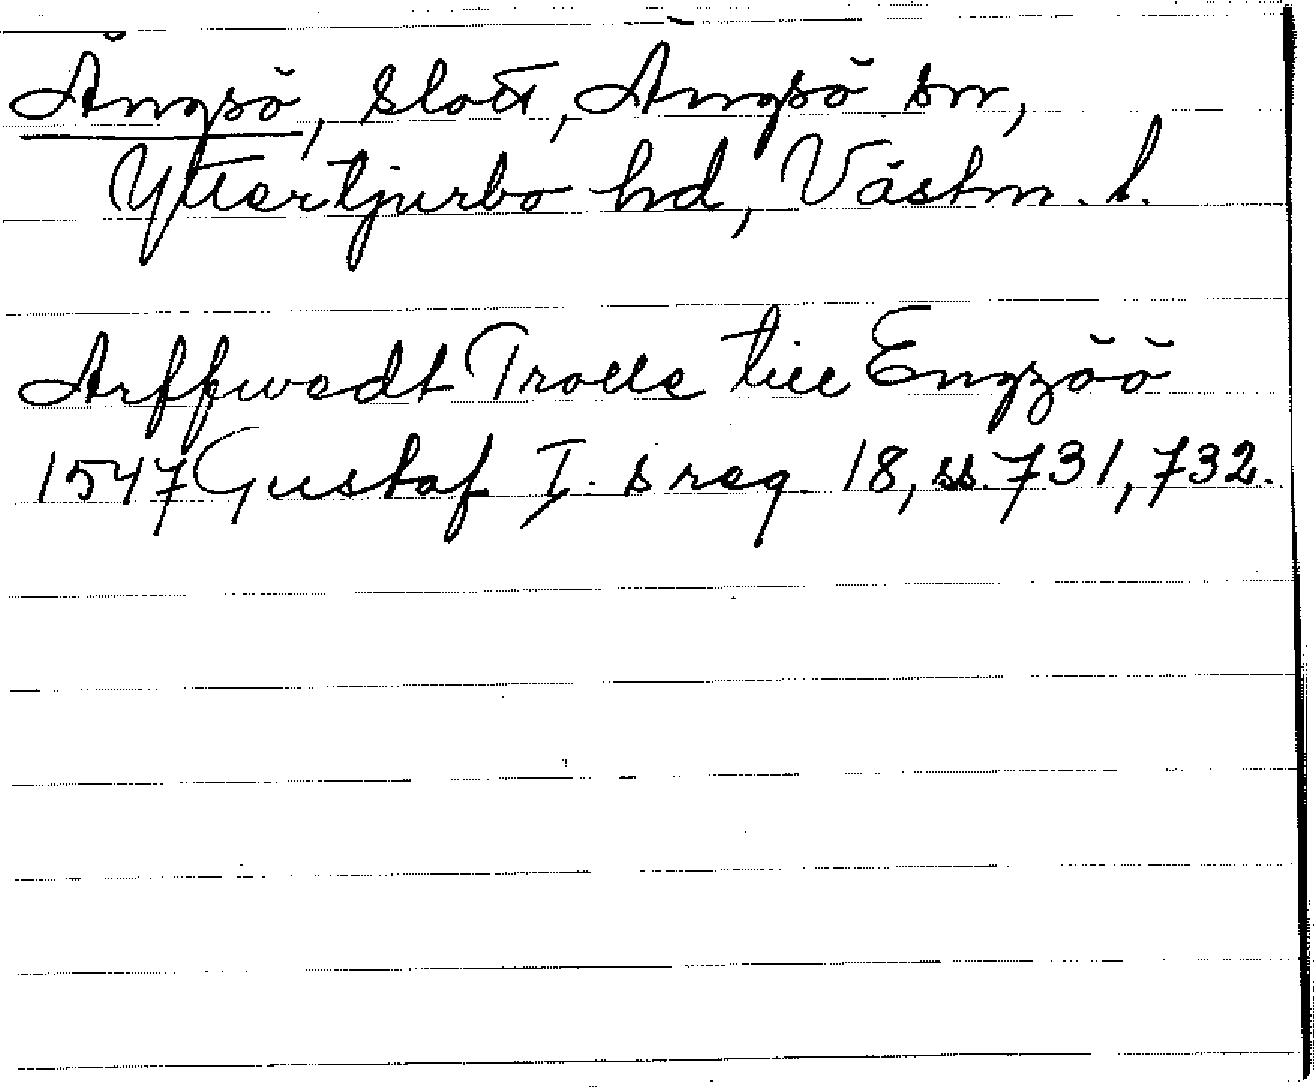 Ängsö, slott, Ängsö sn,
Yttertjurbo hd, Västm. l.
Arffwedt Trolle till Engzöö
1547 Gustaf I. s reg. 18, ss. 731, 732.